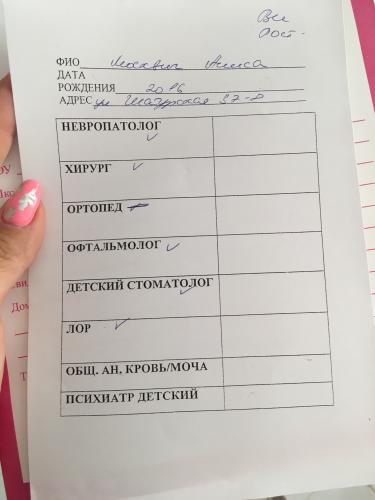 ФИО Москвич Алиса
ДАТА
РОЖДЕНИЯ 2016
АДРЕС ул Шатурская 37-8
НЕВРОПАТОЛОГ
ХИРУРГ
ОРТОПЕД
ОФТАЛЬМОЛОГ
ДЕТСКИЙ СТОМАТОЛОГ
ЛОР
ОБЩ. АН. КРОВЬ/МОЧА
ПСИХИАТР ДЕТСКИЙ